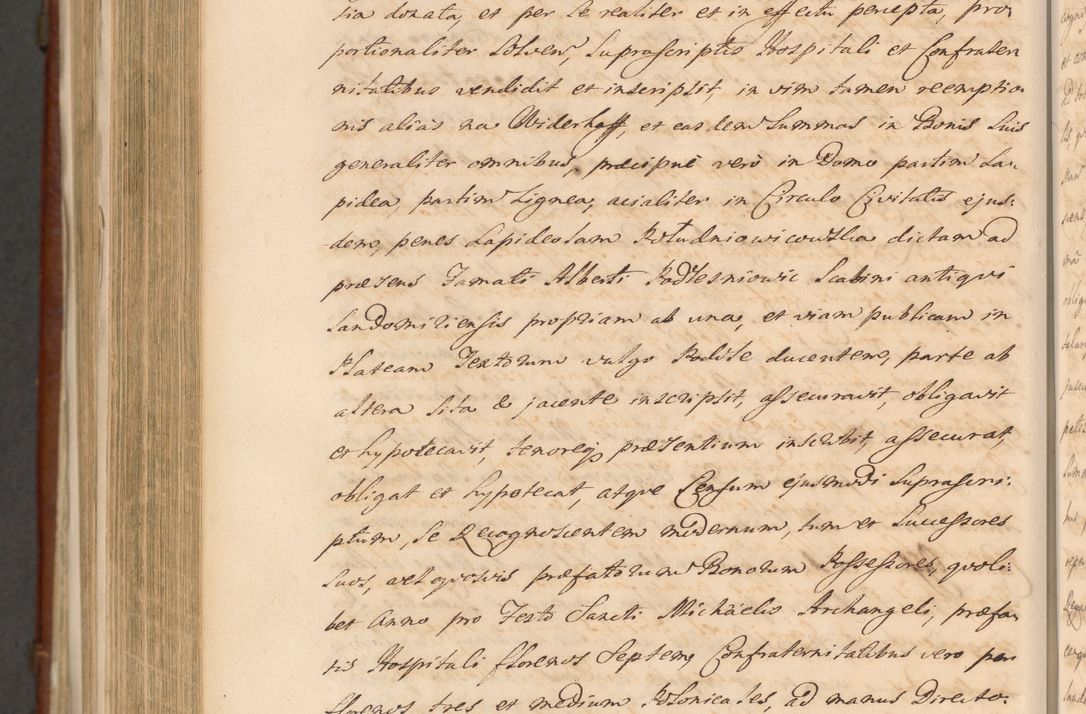 tia donata, et per se realiter et in effectu percepta, pro
portionaliter solven, suprascriptis Hospitali et Confrater
nitatibus vendidit et inscripsit, in vim tamen reemptio
nis alias na Widerkaff, et easdem Summas in Bonis suis
generaliter omnibus, præcipuè verò in Domo partim La
pidea, partim Lignea, acialiter in Circulo Civitatis ejus:
dem, penes Lapideolam dictam ad
præsens Famati Alberti Podlesniowic Scabini antiqvi
Sandomiriensis propriam ab una, et viam publicam in
Plateam Textorum vulgo ducentem, parte ab
altera sita & jacente inscripsit, assecuravit, obligavit
et hypotecavit, tenoreq præsentium inscribit, assecurat,
obligat et hypotecat, atqve Censum ejusmodi suprascri:
ptum, se Recognoscentem modernum, tum et Successores
suos, vel qvosvis præfatorum Bonorum Possessores, qvoli:
bet Anno pro Festo Sancti Michäelis Archangeli, præfa
tis Hospitali florenos Septem, Confraternitatibus vero per
florenos tres et medium Polonicales, ad manus Directo: